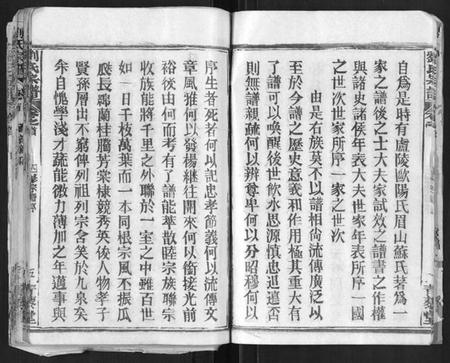 自爲是時有盧陵歐陽氏眉山蘇氏著爲一
家之譜後之士大夫家試效之譜書之作權
與諸史諸侯年表大夫世家年表所序一國
之世次世家所序一家之世次
由是右族莫不以譜相尙流傳廣泛以
至於今譜之歷史意義和作用極其重大有
譜可以喚醒後世飲水思源愼忠追遠否
則無譜親疏何以辨尊卑何以分昭穆何以
序生者死者何以記忠孝節義何以流傳文
章風雅何以紹揚繼往開來何以銜接光前
裕後由何而考有了譜能萃散睦宗族聯宗
收族能將千里之外聯於一室之中雖百世
如一日千枝萬葉而一本同根宗風不振瓜
瓞長綿蘭桂騰芳棠棣競秀英後人物孝子
賢孫層出不窮俾列祖列宗含笑於九泉矣
自愧學淺才疏能微力薄加之年邁事與
劉氏宗譜
卷之首
五
堂